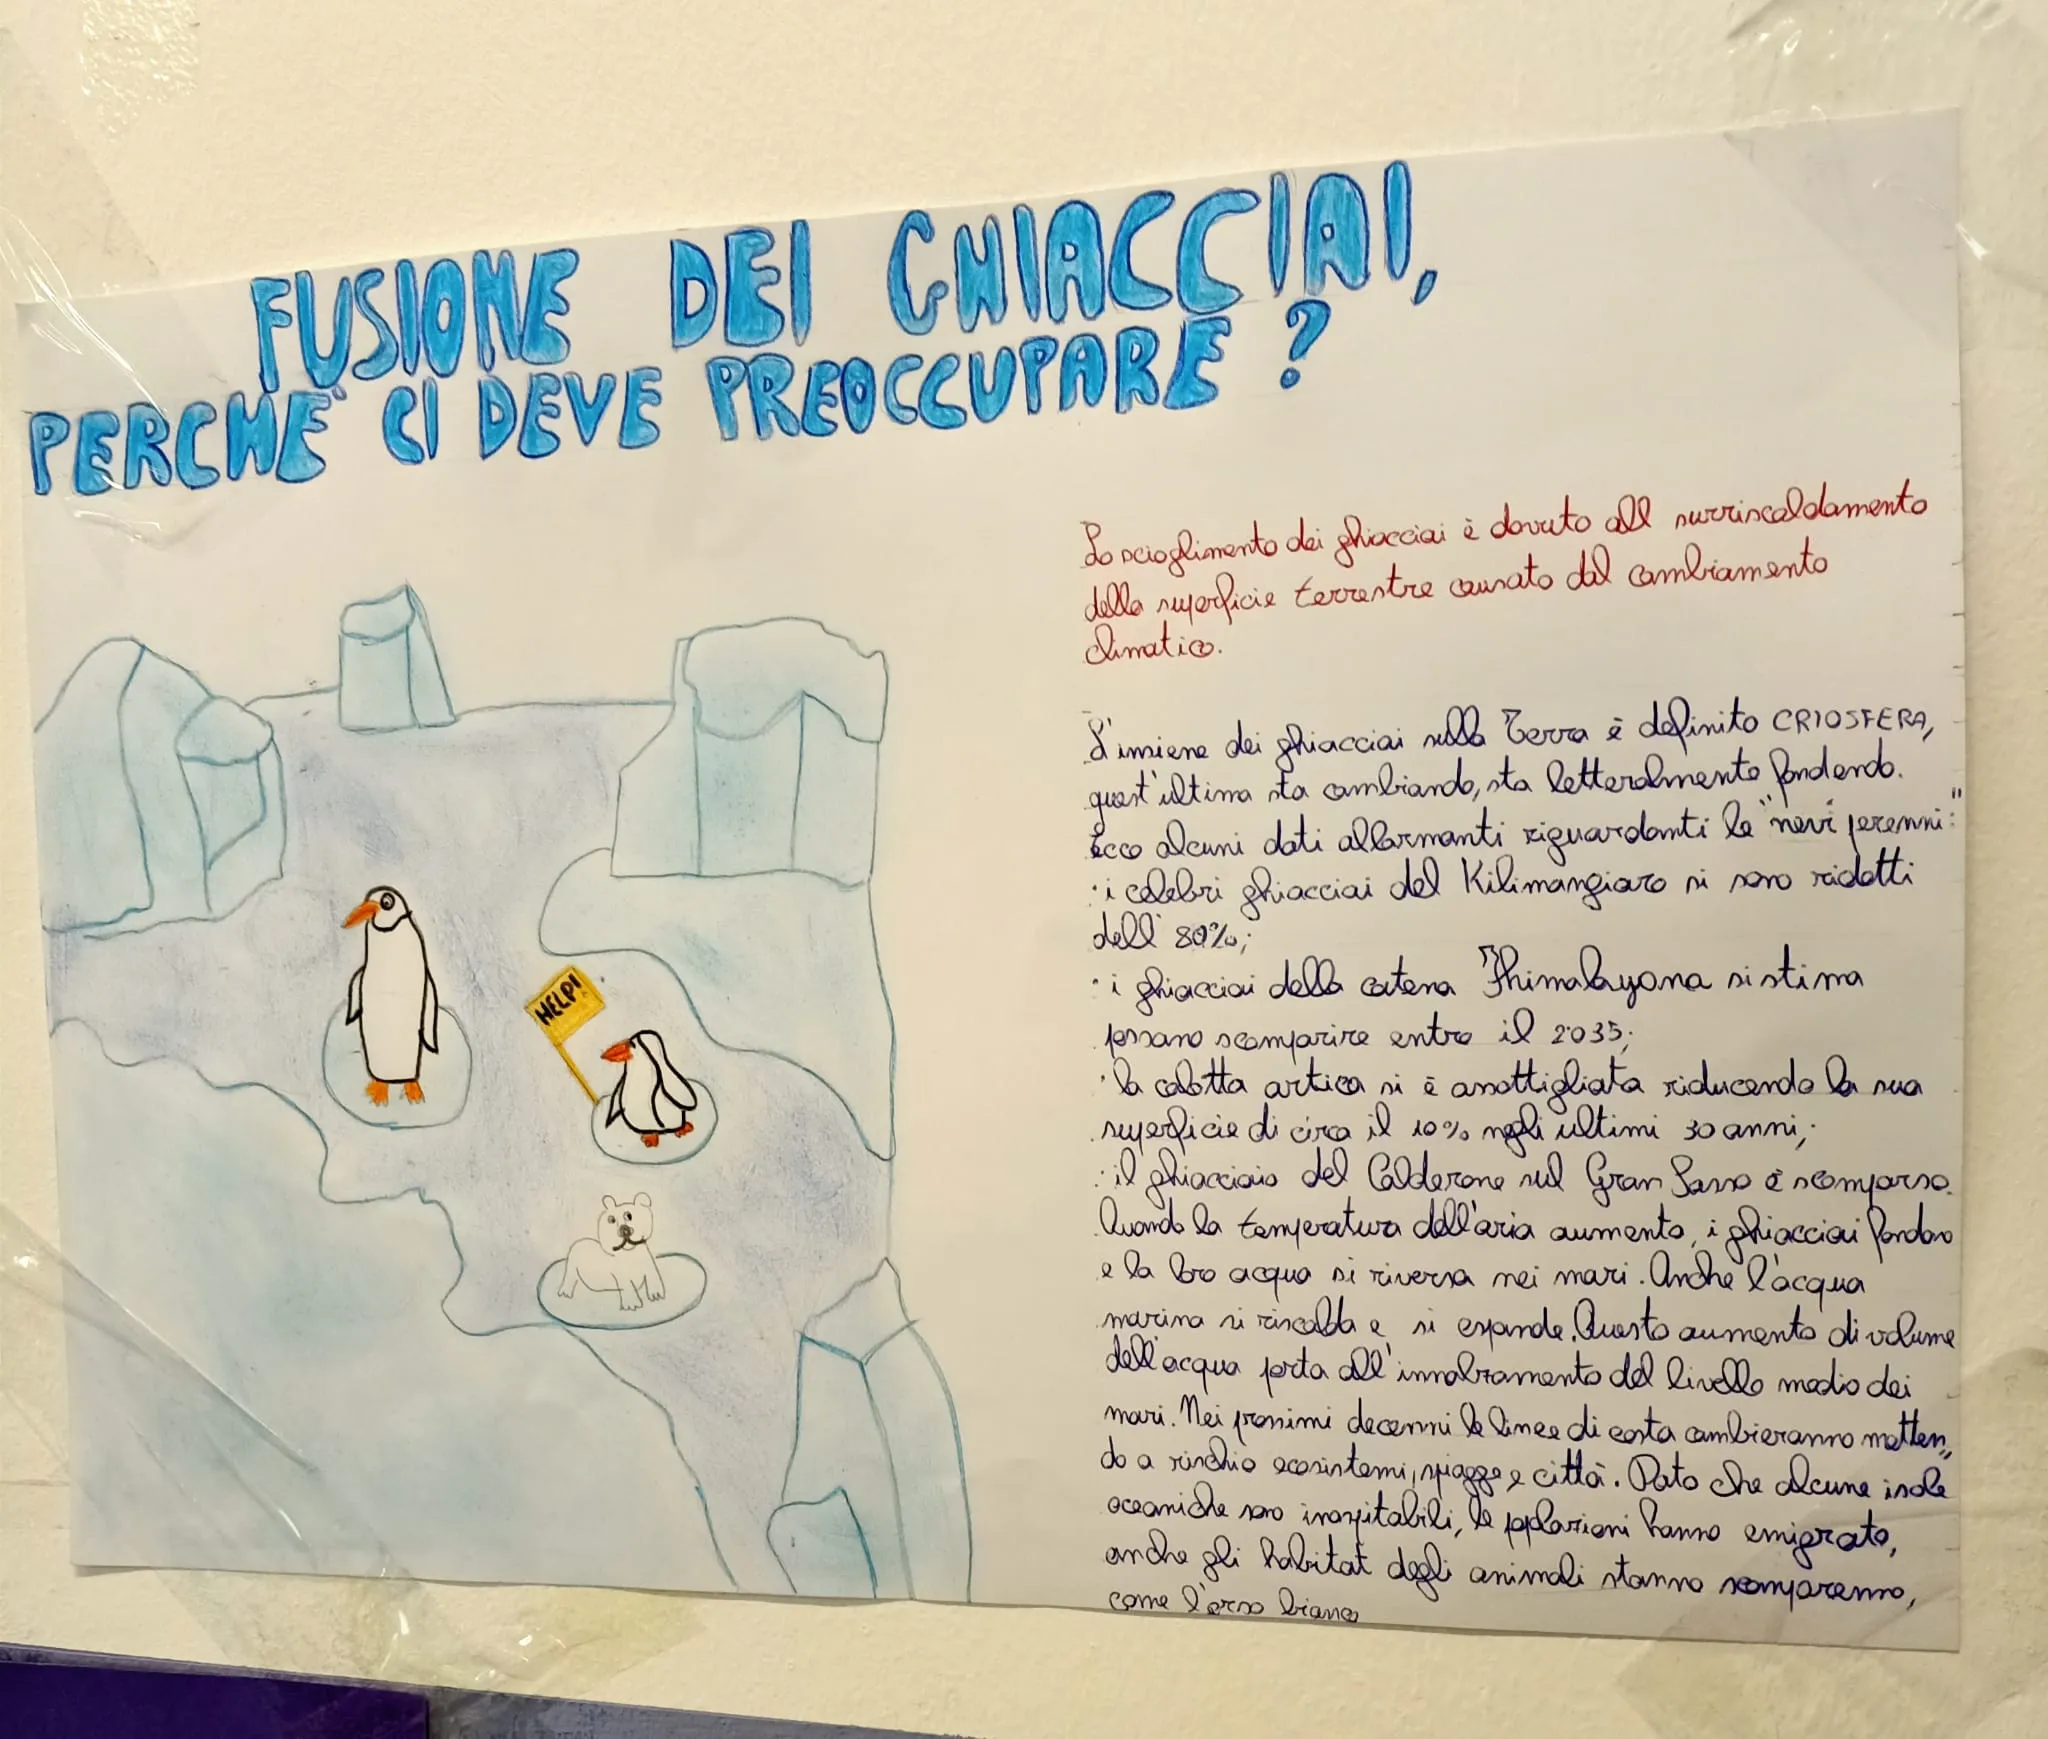 FUSIONE DEI GHIACCIAI,
PERCHE' CI DEVE PREOCCUPARE?
HELP!
Lo scioglimento dei ghiacciai è dovuto all surriscaldamento
della superficie terrestre causato dal cambiamento
climatico.
L'insieme dei ghiacciai sulla Terra è definito CRIOSFERA,
quest'ultima sta cambiando, sta letteralmente fondendo.
Ecco alcuni dati allarmanti riguardanti le "nevi perenni":
· i celebri ghiacciai del Kilimangiaro si sono ridotti
dell' 80%;
· i ghiacciai della catena Himalayana si stima
possano scomparire entro il 2035;
· la calotta artica si è assottigliata riducendo la sua
superficie di circa il 10% negli ultimi 30 anni;
· il ghiacciaio del Calderone sul Gran Sasso è scomparso.
Quando la temperatura dell'aria aumenta, i ghiacciai fondono
e la loro acqua si riversa nei mari. Anche l'acqua
marina si riscalda e si espande. Questo aumento di volume
dell'acqua porta all'innalzamento del livello medio dei
mari. Nei prossimi decenni le linee di costa cambieranno metten=
do a rischio ecosistemi, spiagge e città. Dato che alcune isole
oceaniche sono inospitabili, le popolazioni hanno emigrato,
anche gli habitat degli animali stanno scomparenno,
come l'orso bianco